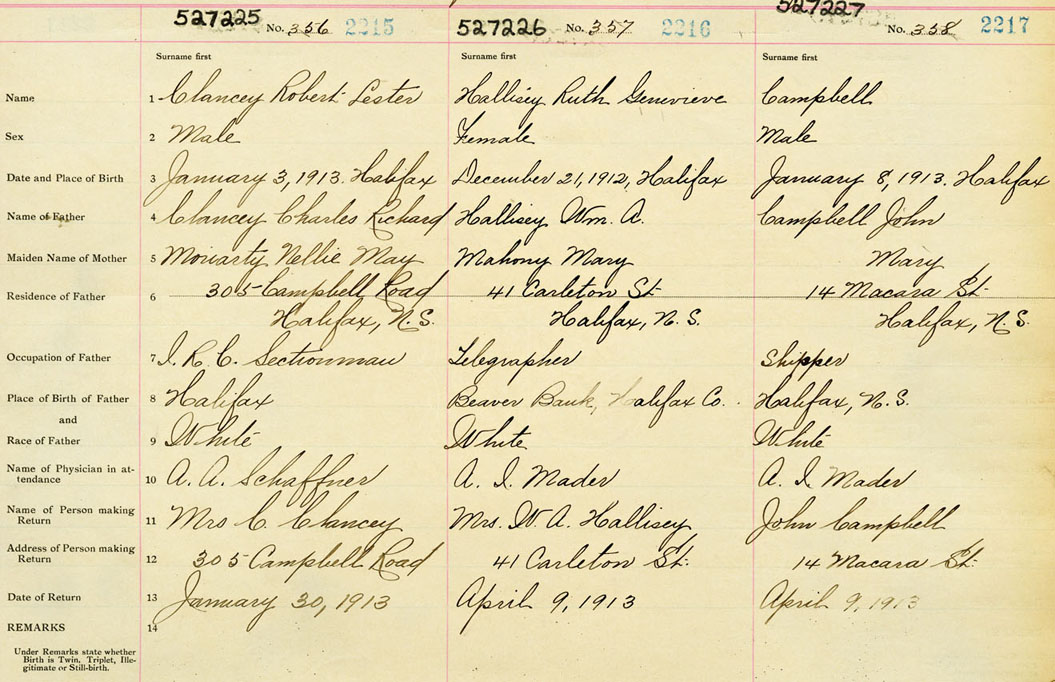 527225 No. 356 2215
527226 No. 357 2216
527227 No. 358 2217
Surname first Surname first Surname first
Name 1 Clancey Robert Lester Hallisey Ruth Genevieve Campbell
Sex 2 Male Female Male
Date and Place of Birth 3 January 3, 1913. Halifax December 21, 1912, Halifax January 8, 1913. Halifax
Name of Father 4 Clancey Charles Richard Hallisey Wm. A. Campbell John
Maiden Name of Mother 5 Moriarty Nellie May Mahony Mary Mary
Residence of Father 6 305 Campbell Road 41 Carleton St. 14 Macara St.
Halifax, N.S. Halifax, N.S. Halifax, N.S.
Occupation of Father 7 I.R.C. Sectionman Telegrapher Shipper
Place of Birth of Father 8 Halifax Beaver Bank, Halifax Co. Halifax, N.S.
and
Race of Father 9 White White White
Name of Physician in at-
tendance 10 A. A. Schaffner A. I. Mader A. I. Mader
Name of Person making
Return 11 Mrs C Clancey Mrs. W. A. Hallisey John Campbell
Address of Person making
Return 12 305 Campbell Road 41 Carleton St. 14 Macara St.
Date of Return 13 January 30, 1913 April 9, 1913 April 9, 1913
REMARKS 14
Under Remarks state whether
Birth is Twin, Triplet, Ille-
gitimate or Still-birth.